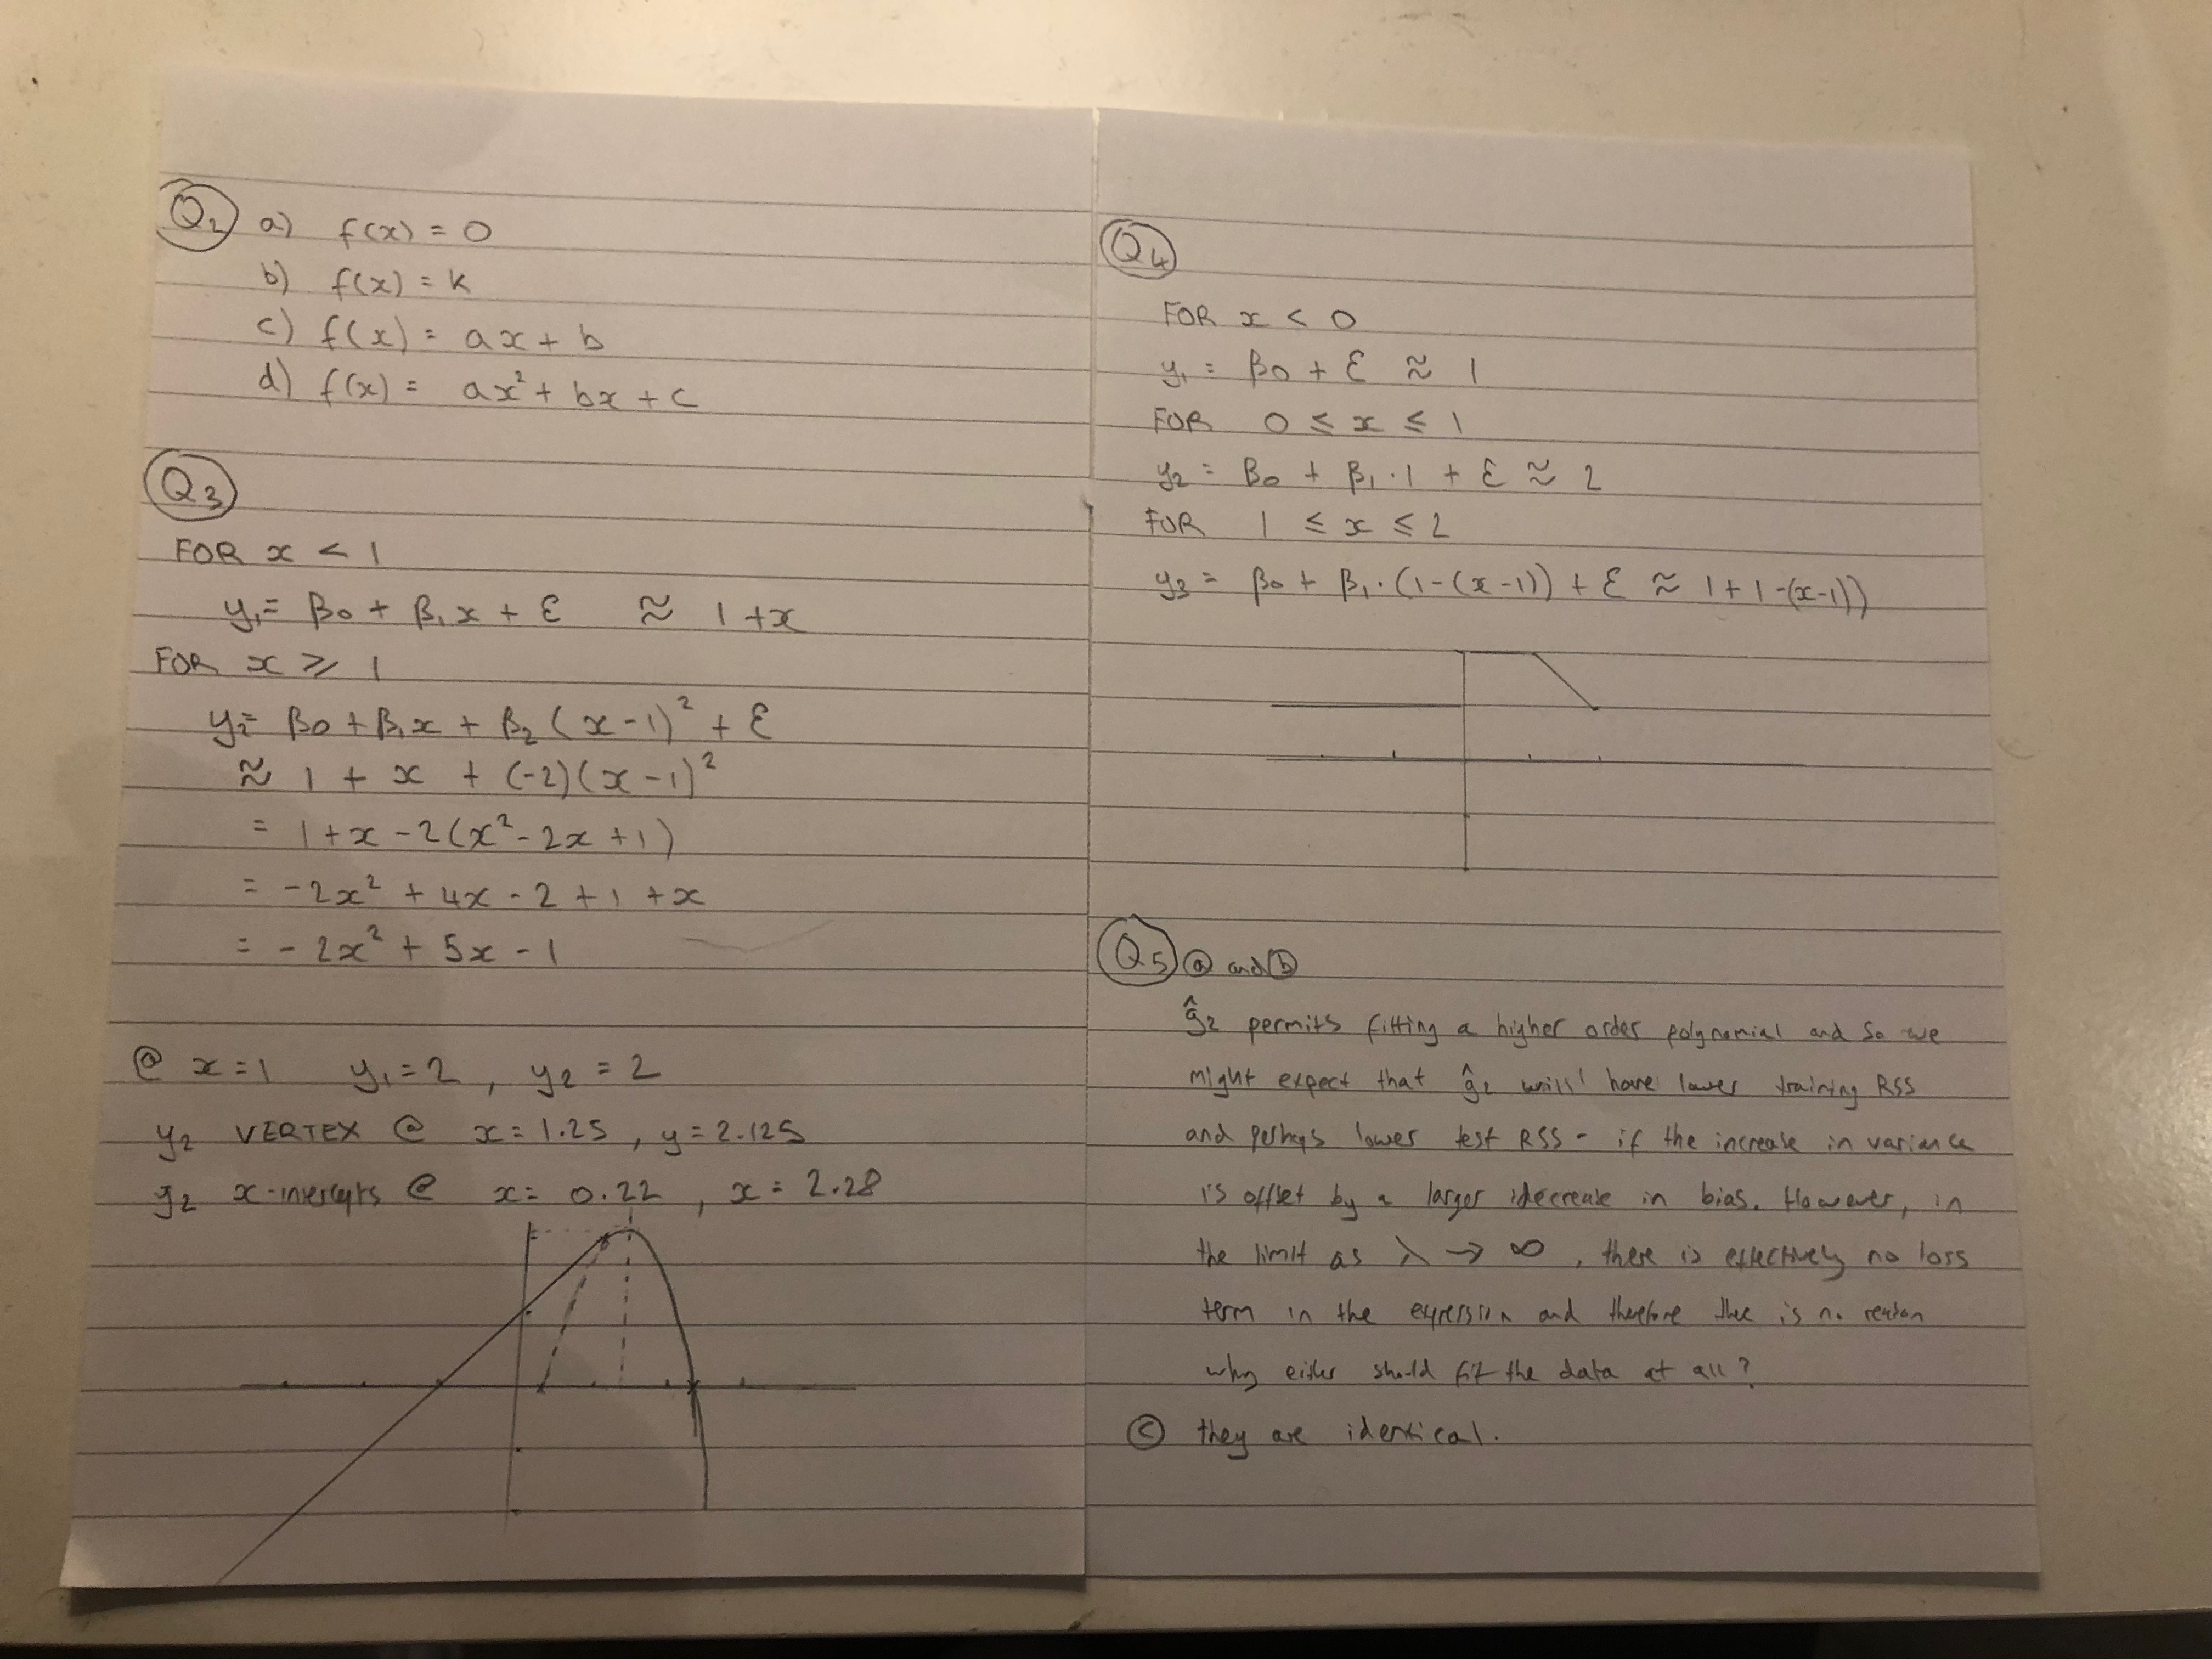 Q2 a) f(x) = 0
b) f(x) = k
c) f(x) = ax + b
d) f(x) = ax² + bx + c
Q3
FOR x < 1
y₁ = β0 + β₁x + ε ≈ 1 + x
FOR x ⩾ 1
y₂ = β0 + β₁x + β₂(x-1)² + ε
≈ 1 + x + (-2)(x-1)²
= 1 + x - 2(x² - 2x + 1)
= -2x² + 4x - 2 + 1 + x
= -2x² + 5x - 1
@ x=1 y₁=2, y₂=2
y₂ VERTEX @ x=1.25, y=2.125
y₂ x-intercepts @ x= 0.22, x= 2.28
Q4
FOR x < 0
y₁ = β0 + ε ≈ 1
FOR 0 ≤ x ≤ 1
y₂ = β0 + β₁·1 + ε ≈ 2
FOR 1 ≤ x ≤ 2
y₃ = β0 + β₁·(1-(x-1)) + ε ≈ 1+1-(x-1))
Q5 ⓐ and ⓑ
ĝ2 permits fitting a higher order polynomial and so we
might expect that ĝ2 will have lower training RSS
and perhaps lower test RSS - if the increase in variance
is offset by a larger decrease in bias. However, in
the limit as λ → ∞, there is effectively no loss
term in the expression and therefore there is no reason
why either should fit the data at all?
ⓒ they are identical.